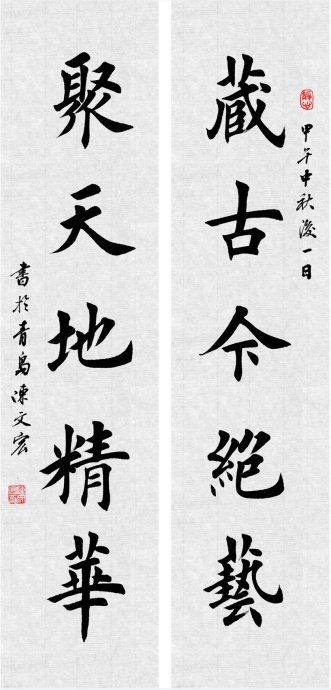 藏古今絕藝
甲午中秋後一日
聚天地精華
書於青島陳文宏